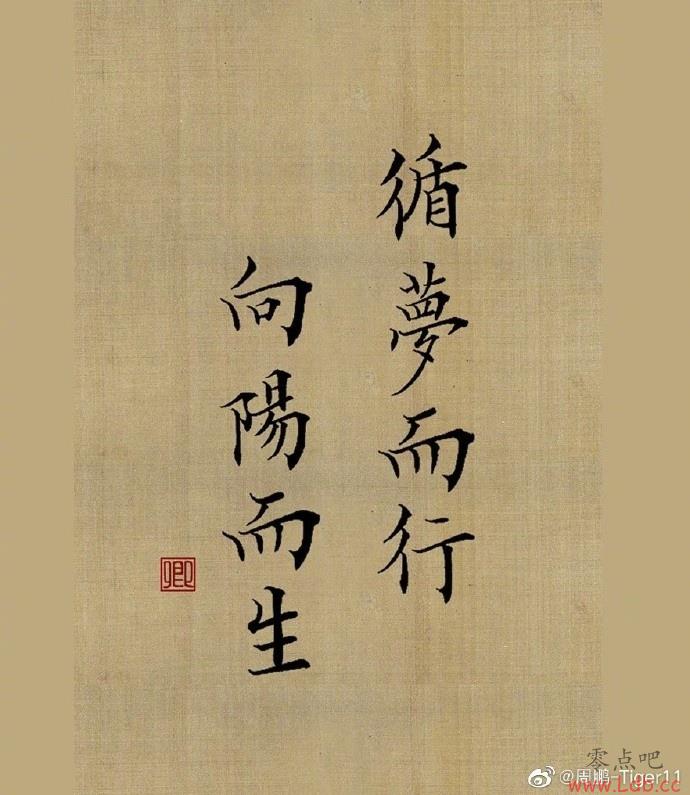 循夢而行
向陽而生
卿
零点吧
@周鹏-Tiger11
www.Ldb.cc